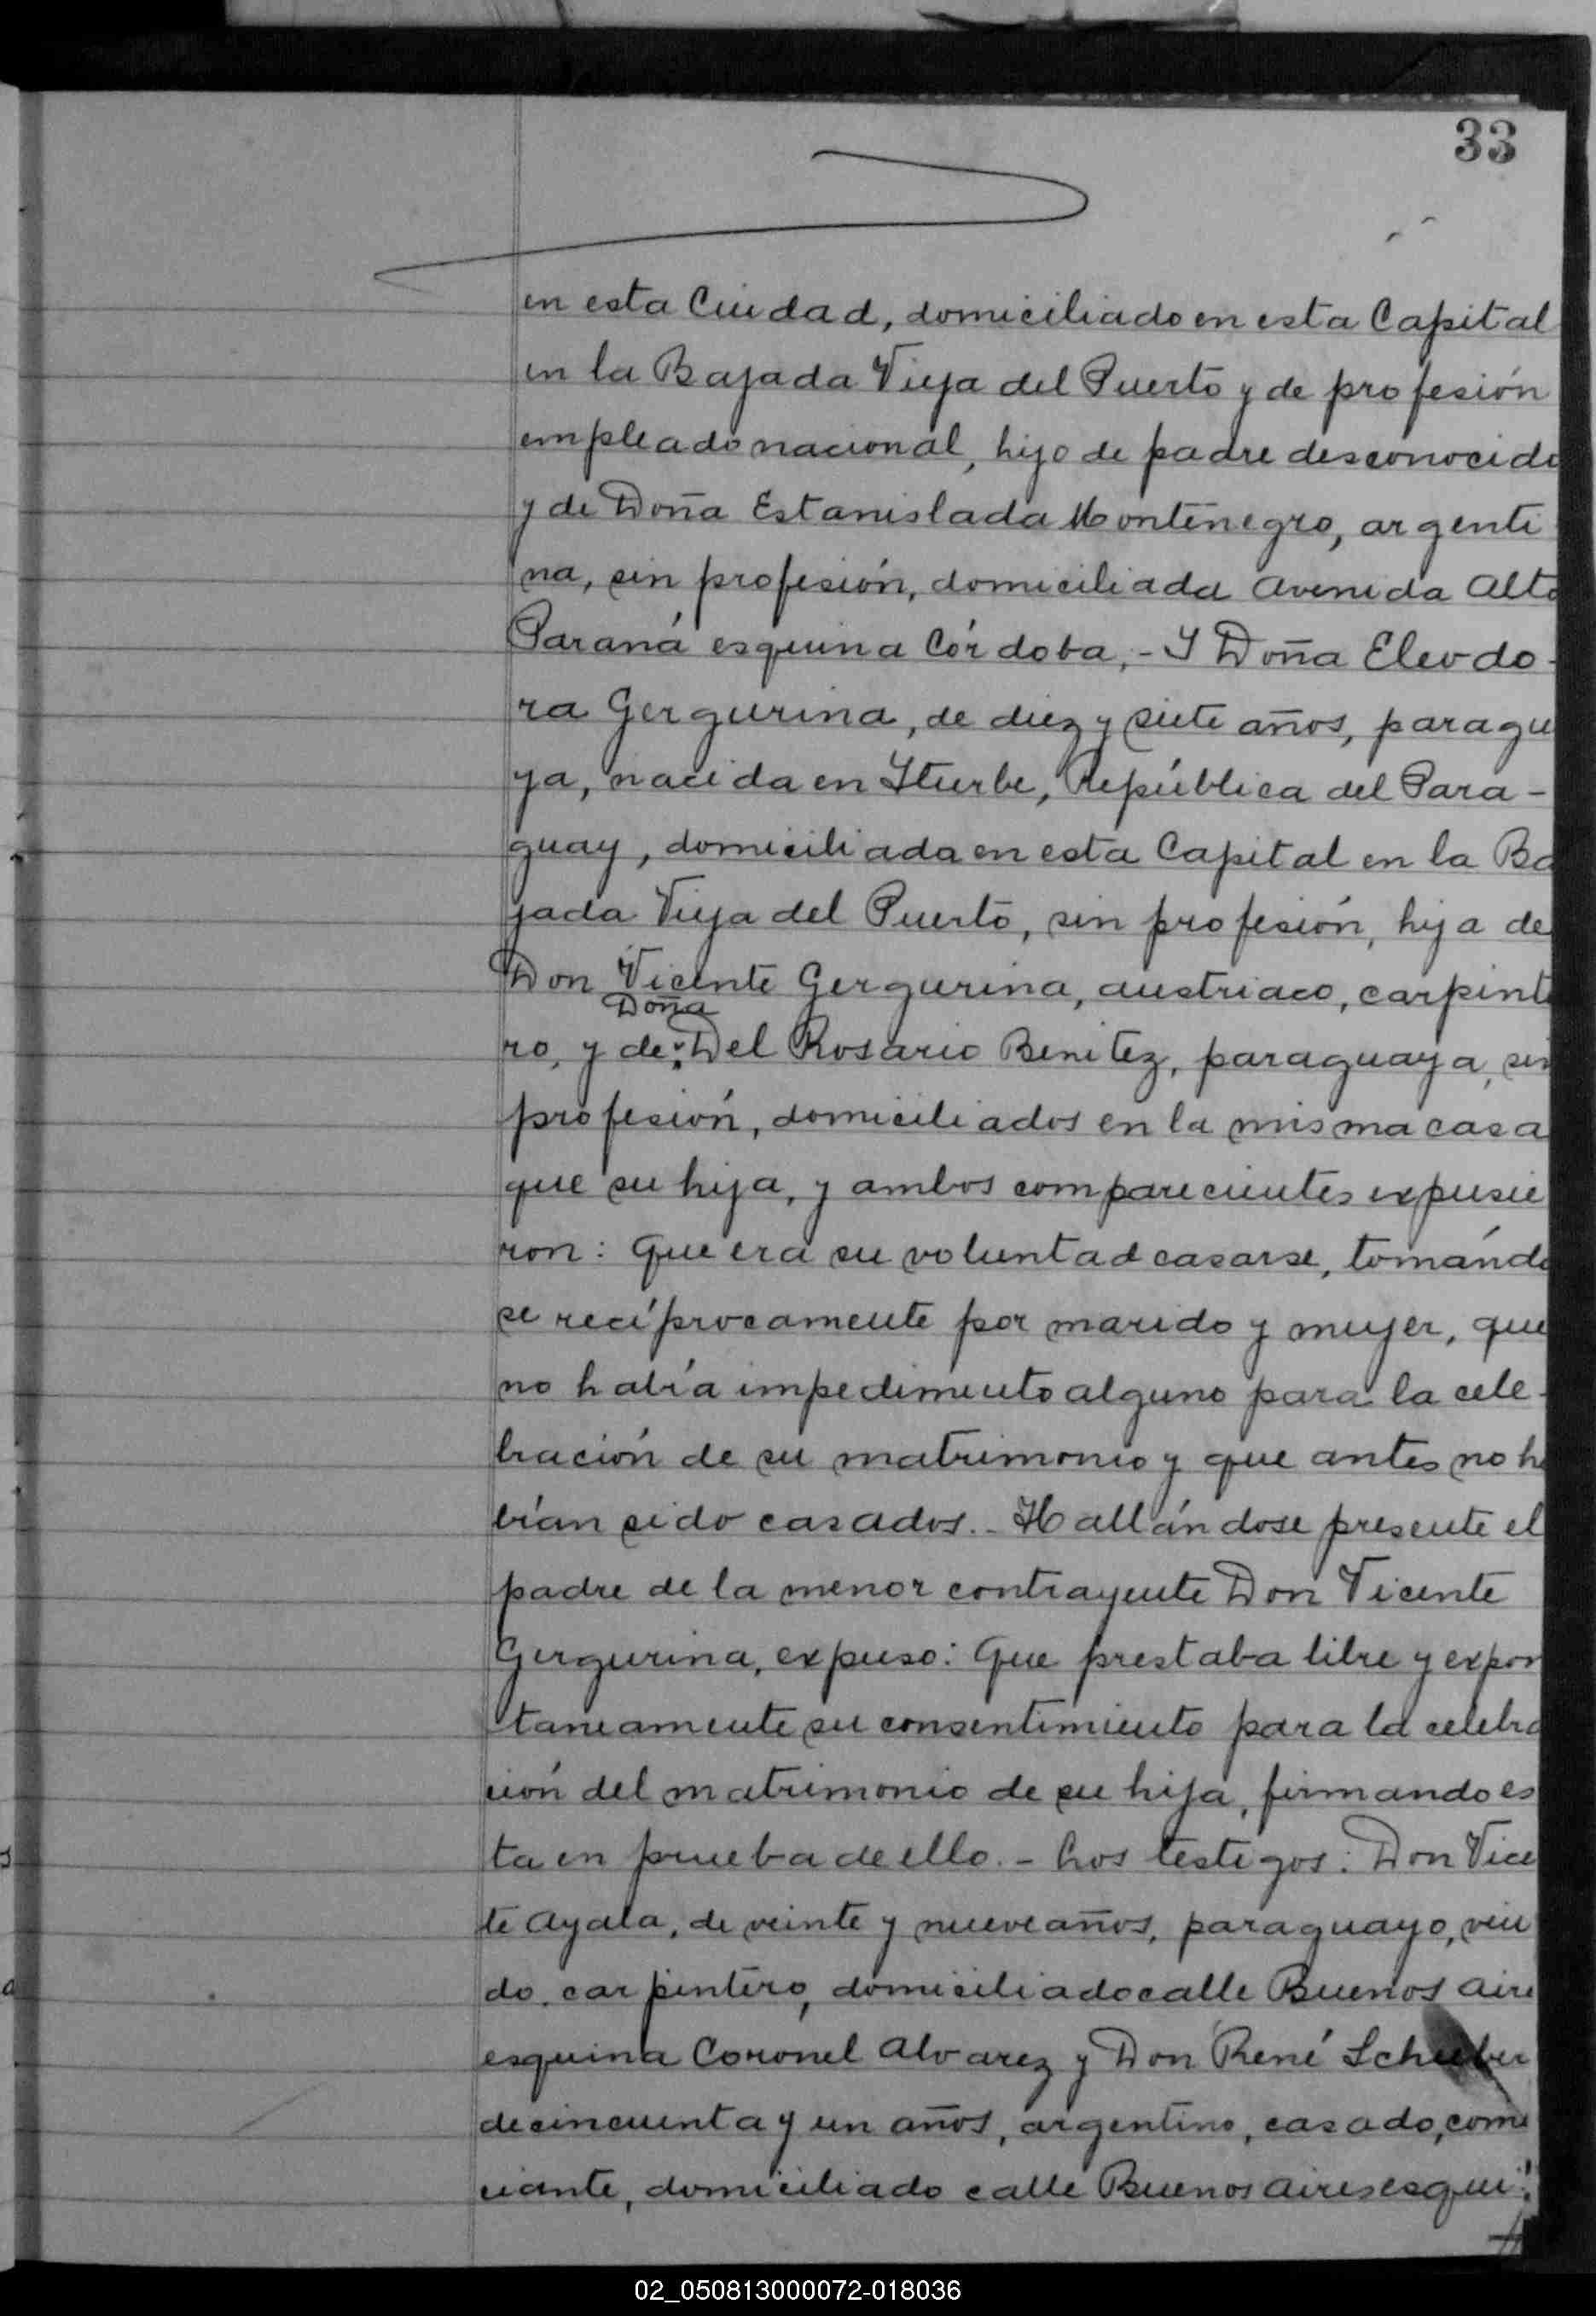 33
en esta Ciudad, domiciliado en esta Capital
en la Bajada Vieja del Puerto y de profesión
empleado nacional, hijo de padre desconocido
y de Doña Estanislada Montenegro, argenti
na, sin profesión, domiciliada Avenida Alto
Paraná esquina Córdoba,- Y Doña Eleodo-
ra Gergurina, de diez y siete años, paragu
ya, nacida en Iturbe, República del Para-
guay, domiciliada en esta Capital en la Ba
jada Vieja del Puerto, sin profesión, hija de
Don Vicente Gergurina, austriaco, carpinte
Doña
ro, y de Del Rosario Benitez, paraguaya, sin
profesión, domiciliados en la misma casa
que su hija, y ambos comparecientes expusie
ron: Que era su voluntad casarse, tomándo
se recíprocamente por marido y mujer, que
no había impedimento alguno para la cele-
bración de su matrimonio y que antes no ha
bían sido casados.- Hallándose presente el
padre de la menor contrayente Don Vicente
Gergurina, expuso: Que prestaba libre y expon
taneamente su consentimiento para la celebra
ción del matrimonio de su hija, firmando es
ta en prueba de ello.- Los testigos: Don Vice
te Ayala, de veinte y nueve años, paraguayo, viu
do, carpintero, domiciliado calle Buenos Aire
esquina Coronel Alvarez y Don René
de cincuenta y un años, argentino, casado, come
ciante, domiciliado calle Buenos Aires esqui
02_050813000072-018036